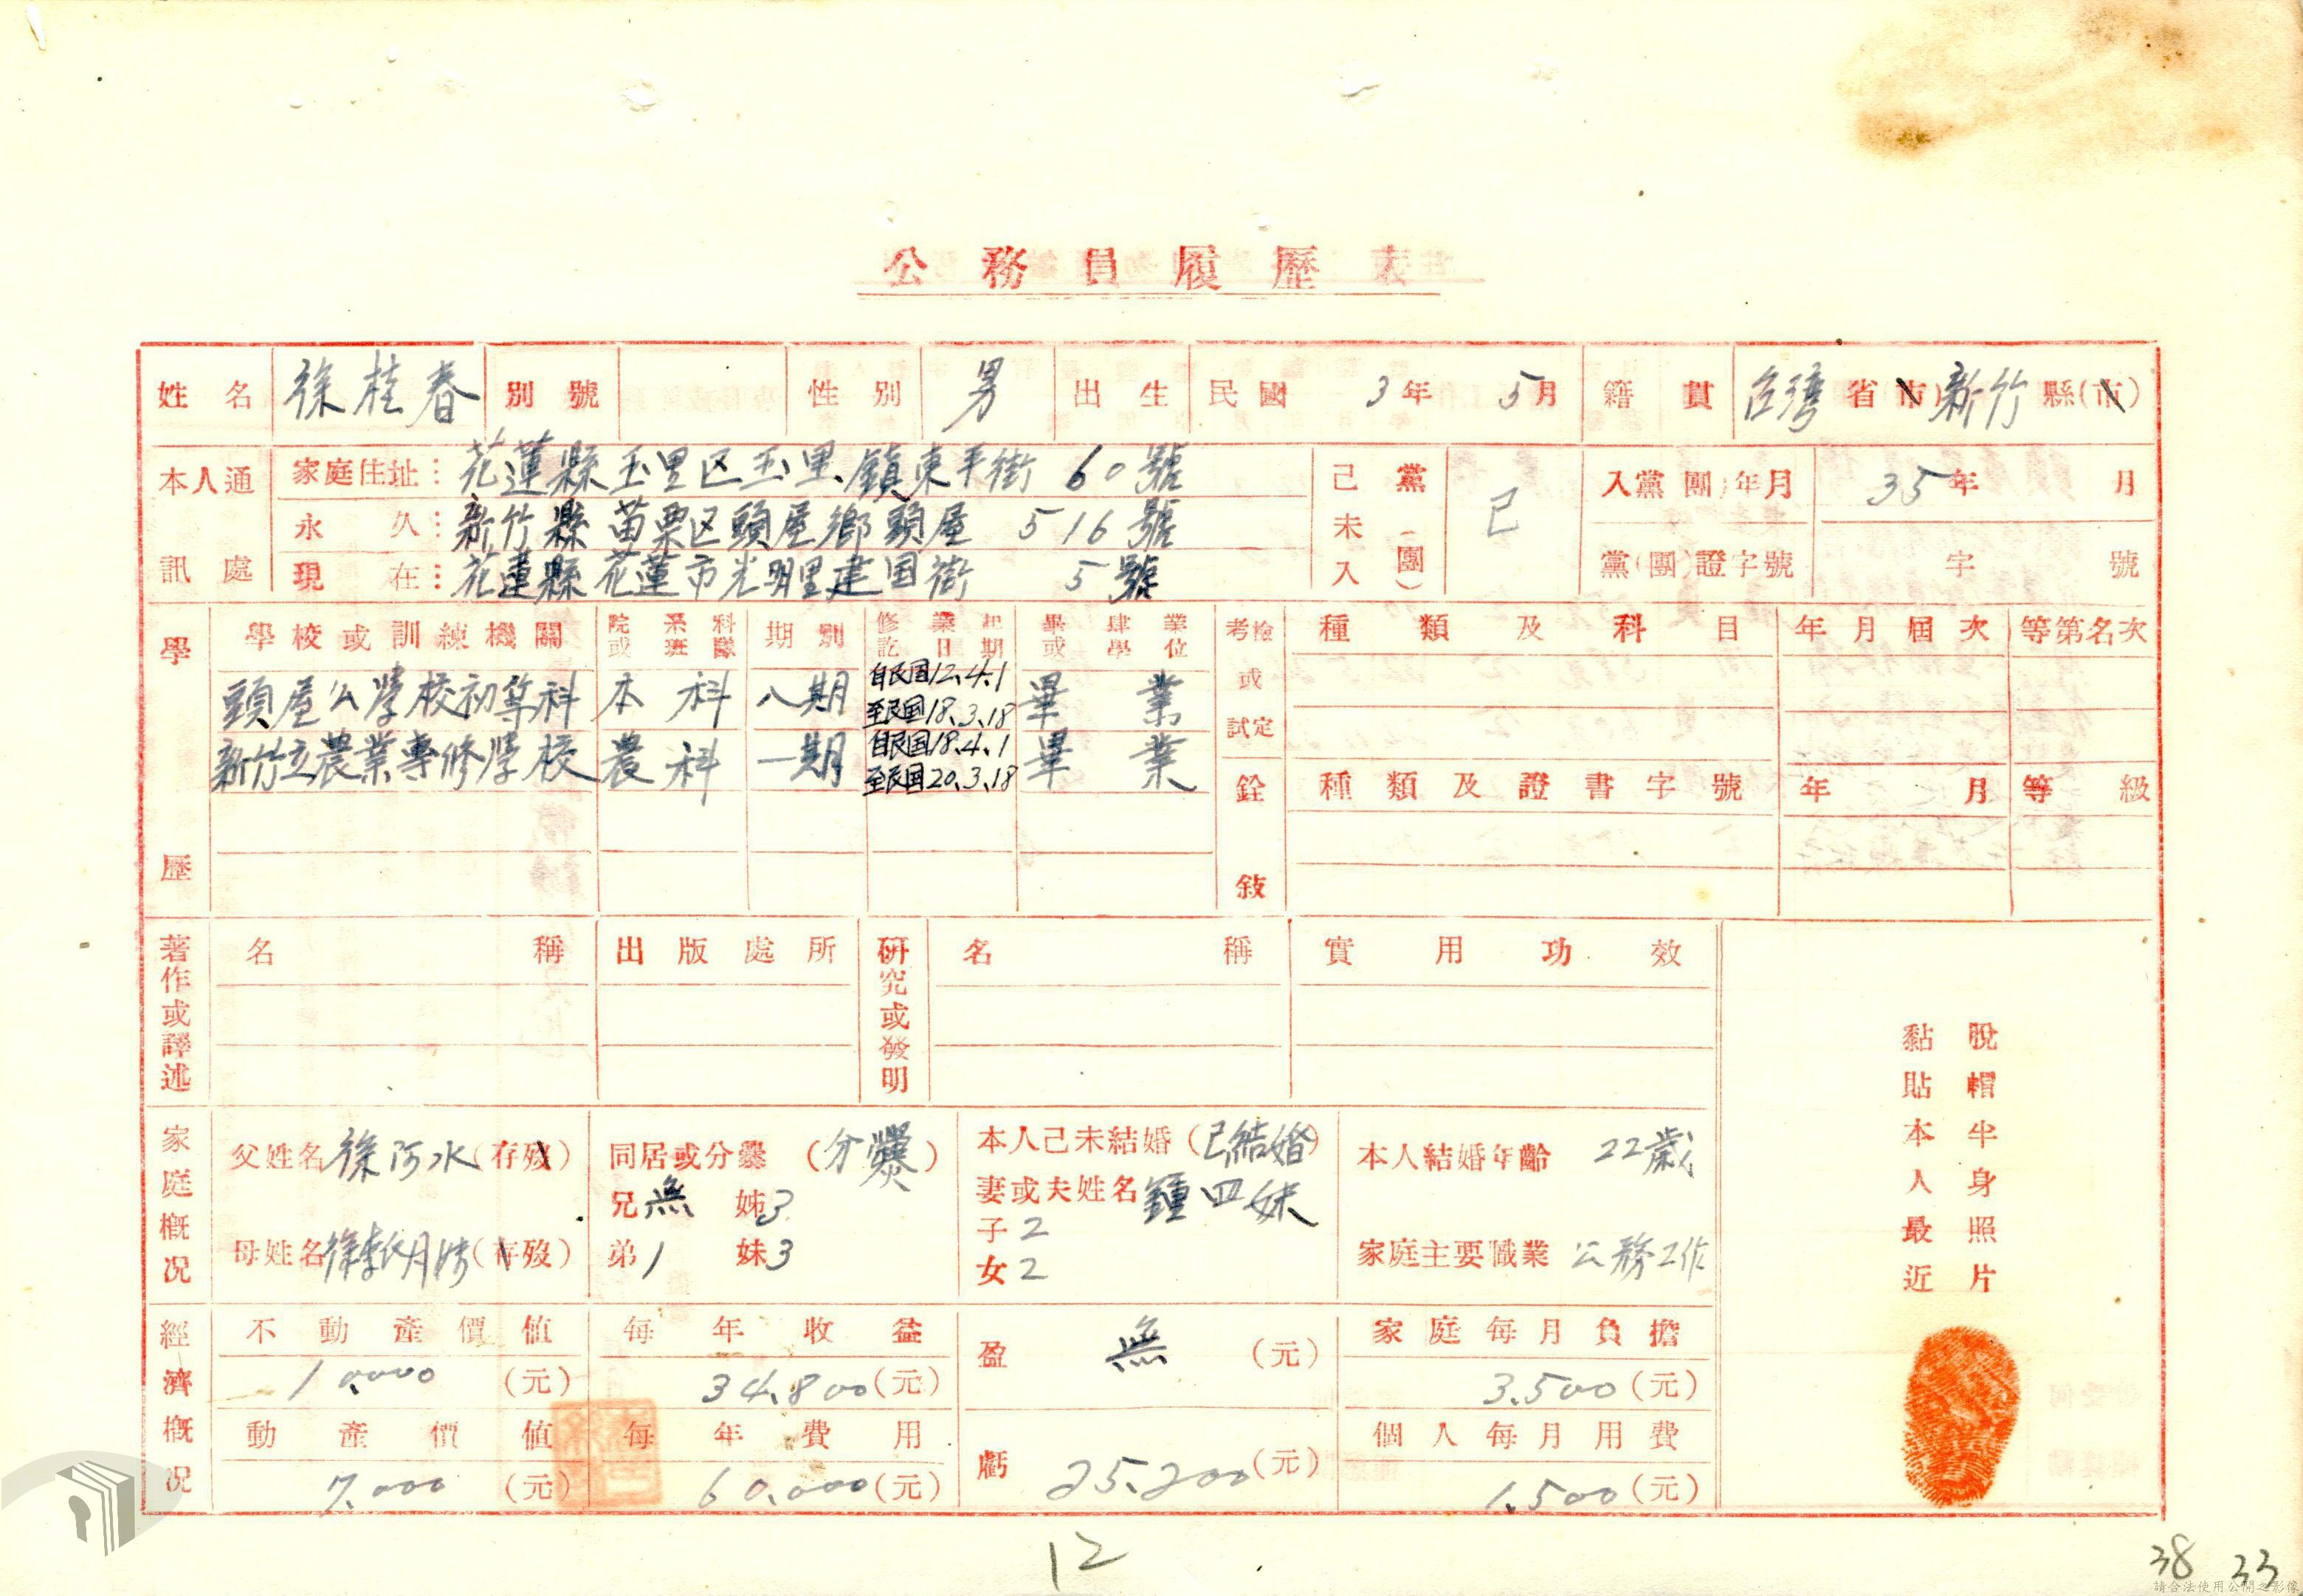 公務員履歷表
姓名 徐桂春 別號 性別 男 出生 民國 3年 5月 籍貫 台灣省(市)新竹縣(市)
本人通訊處
家庭住址：花蓮縣玉里区玉里鎮東平街 60號
永久：新竹縣苗栗区頭屋鄉頭屋 516號
現在：花蓮縣花蓮市光明里建国街 5號
已未入黨(團) 已 入黨(團)年月 35年 月
黨(團)證字號 字 號
學歷
學校或訓練機關 院系科或班隊 期別 修業起訖日期 畢肄業或學位
頭屋公學校初等科 本科 八期 自民国12.4.1 至民国18.3.18 畢業
新竹立農業專修學校 農科 一期 自民国18.4.1 至民国20.3.18 畢業
考試或檢定 種類及科目 年月屆次 等第名次
銓敍 種類及證書字號 年月 等級
著作或譯述 名稱 出版處所
研究或發明 名稱 實用功效
脫帽半身照片
黏貼本人最近
家庭概況
父姓名 徐阿水 (存歿)
母姓名 (存歿)
同居或分爨 (分爨)
兄無 姊3
弟1 妹3
本人已未結婚 (已結婚)
妻或夫姓名 鍾四妹
子2
女2
本人結婚年齡 22歲
家庭主要職業 公務工作
經濟概況
不動產價值 每年收益 盈 無 (元) 家庭每月負擔
10.000 (元) 34.800 (元) 3.500 (元)
動產價值 每年費用 虧 25.200 (元) 個人每月用費
7.000 (元) 60.000 (元) 1.500 (元)
12
38 33
請合法使用公開之影像